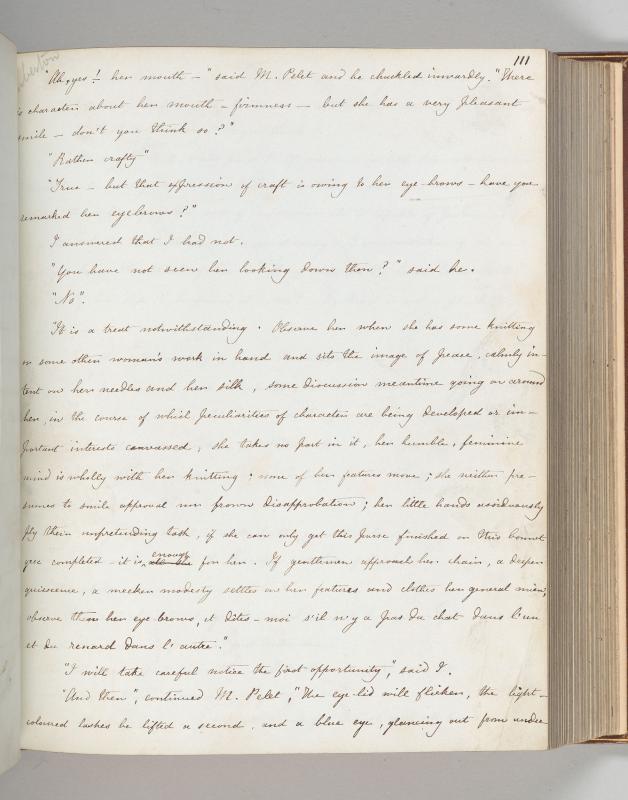 111
"Ah, yes! her mouth —" said M. Pelet and he chuckled inwardly. "There
is character about her mouth — firmness — but she has a very pleasant
smile — don't you think so?"
"Rather crafty"
"True — but that expression of craft is owing to her eye-brows — have you
remarked her eyebrows?"
I answered that I had not.
"You have not seen her looking down then?" said he.
"No".
"It is a treat notwithstanding. Observe her when she has some knitting
or some other woman's work in hand and sits the image of peace, calmly in-
tent on her needles and her silk, some discussion meantime going on around
her, in the course of which peculiarities of character are being developed or im-
portant interests canvassed, she takes no part in it, her humble, feminine
mind is wholly with her knitting; none of her features move; she neither pre-
sumes to smile approval nor frown disapprobation; her little hands assiduously
ply their unpretending task, if she can only get this purse finished or this bonnet
grec completed — it is enough for her. If gentlemen approach her chair, a deeper
quiescence, a meeker modesty settles on her features and clothes her general mien;
observe then her eye brows, et dîtes-moi s'il n'y a pas du chat dans l'un
et du renard dans l'autre."
"I will take careful notice the first opportunity", said I.
"And then", continued M. Pelet, "the eye-lid will flicker, the light-
coloured lashes be lifted a second, and a blue eye, glancing out from under